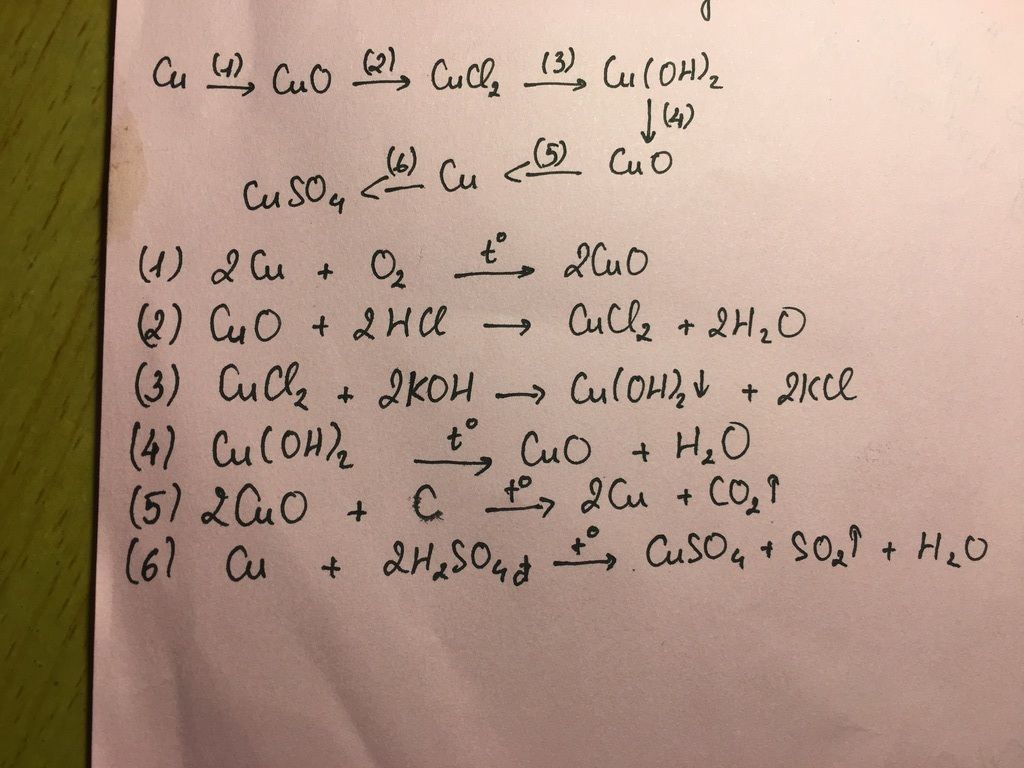 Cu (1)→ CuO (2)→ CuCl₂ (3)→ Cu(OH)₂
↓(4)
CuSO₄ ←(6) Cu ←(5) CuO
(1) 2Cu + O₂ t°→ 2CuO
(2) CuO + 2HCl → CuCl₂ + 2H₂O
(3) CuCl₂ + 2KOH → Cu(OH)₂↓ + 2KCl
(4) Cu(OH)₂ t°→ CuO + H₂O
(5) 2CuO + C t°→ 2Cu + CO₂↑
(6) Cu + 2H₂SO₄ đ t°→ CuSO₄ + SO₂↑ + H₂O